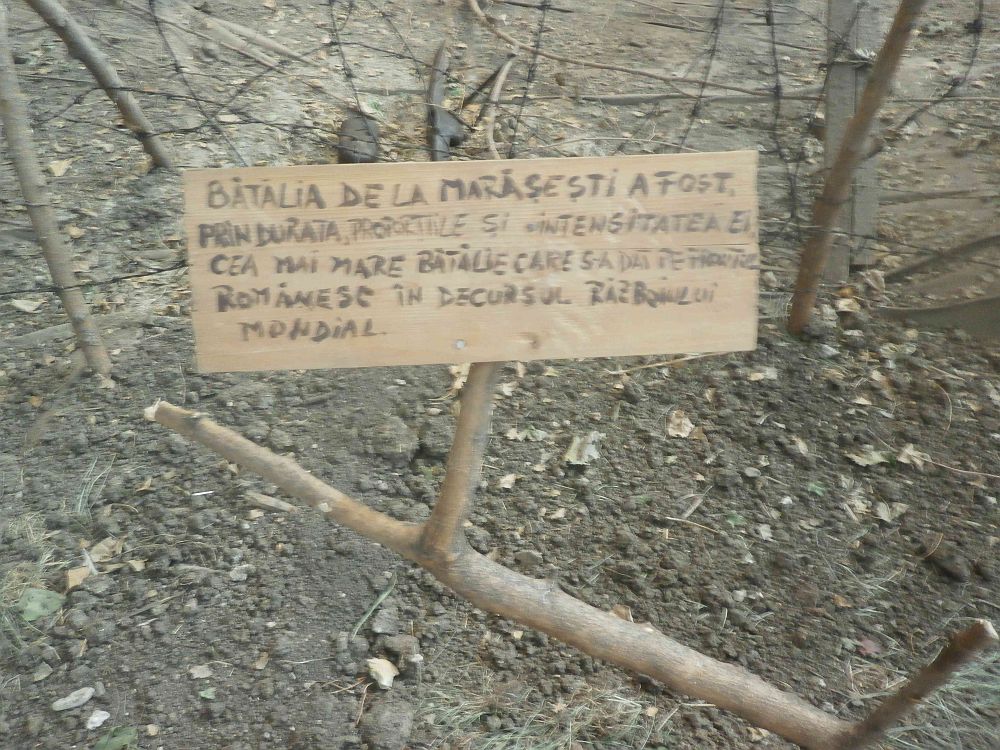 BĂTALIA DE LA MĂRĂŞEŞTI A FOST,
PRIN DURATA, PROPORTIILE SI INTENSITATEA EI,
CEA MAI MARE BĂTĂLIE CARE S-A DAT PE FRONTUL
ROMÂNESC ÎN DECURSUL RĂZBOIULUI
MONDIAL